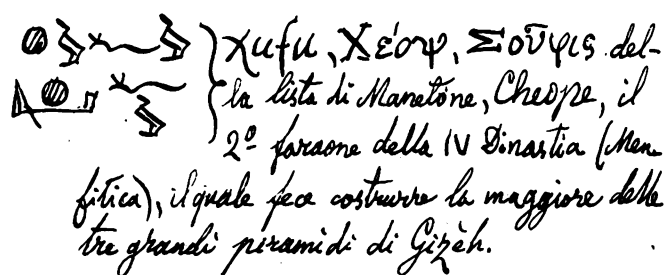 Xufu, Χέοψ, Σοῦφις del-
la lista di Manetóne, Cheope, il
2º faraone della IV Dinastia (Men-
fitica), il quale fece costrurre la maggiore delle
tre grandi piramidi di Gizèh.